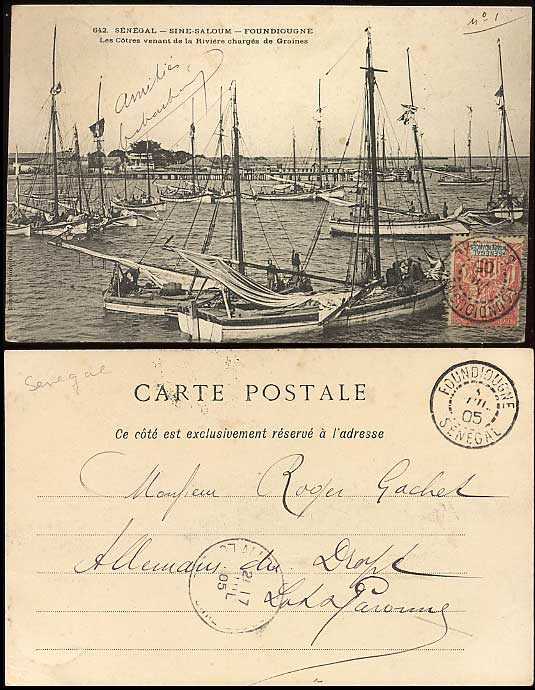 642. SÉNÉGAL — SINE-SALOUM — FOUNDIOUGNE
Les Côtres venant de la Rivière chargés de Graines
nº 1
Amitiés
Senegal
CARTE POSTALE
Ce côté est exclusivement réservé à l'adresse
FOUNDIOUGNE
05
SENEGAL
Monsieur Roger Gachet
Allemans du Dropt
Lot & Garonne
17
05